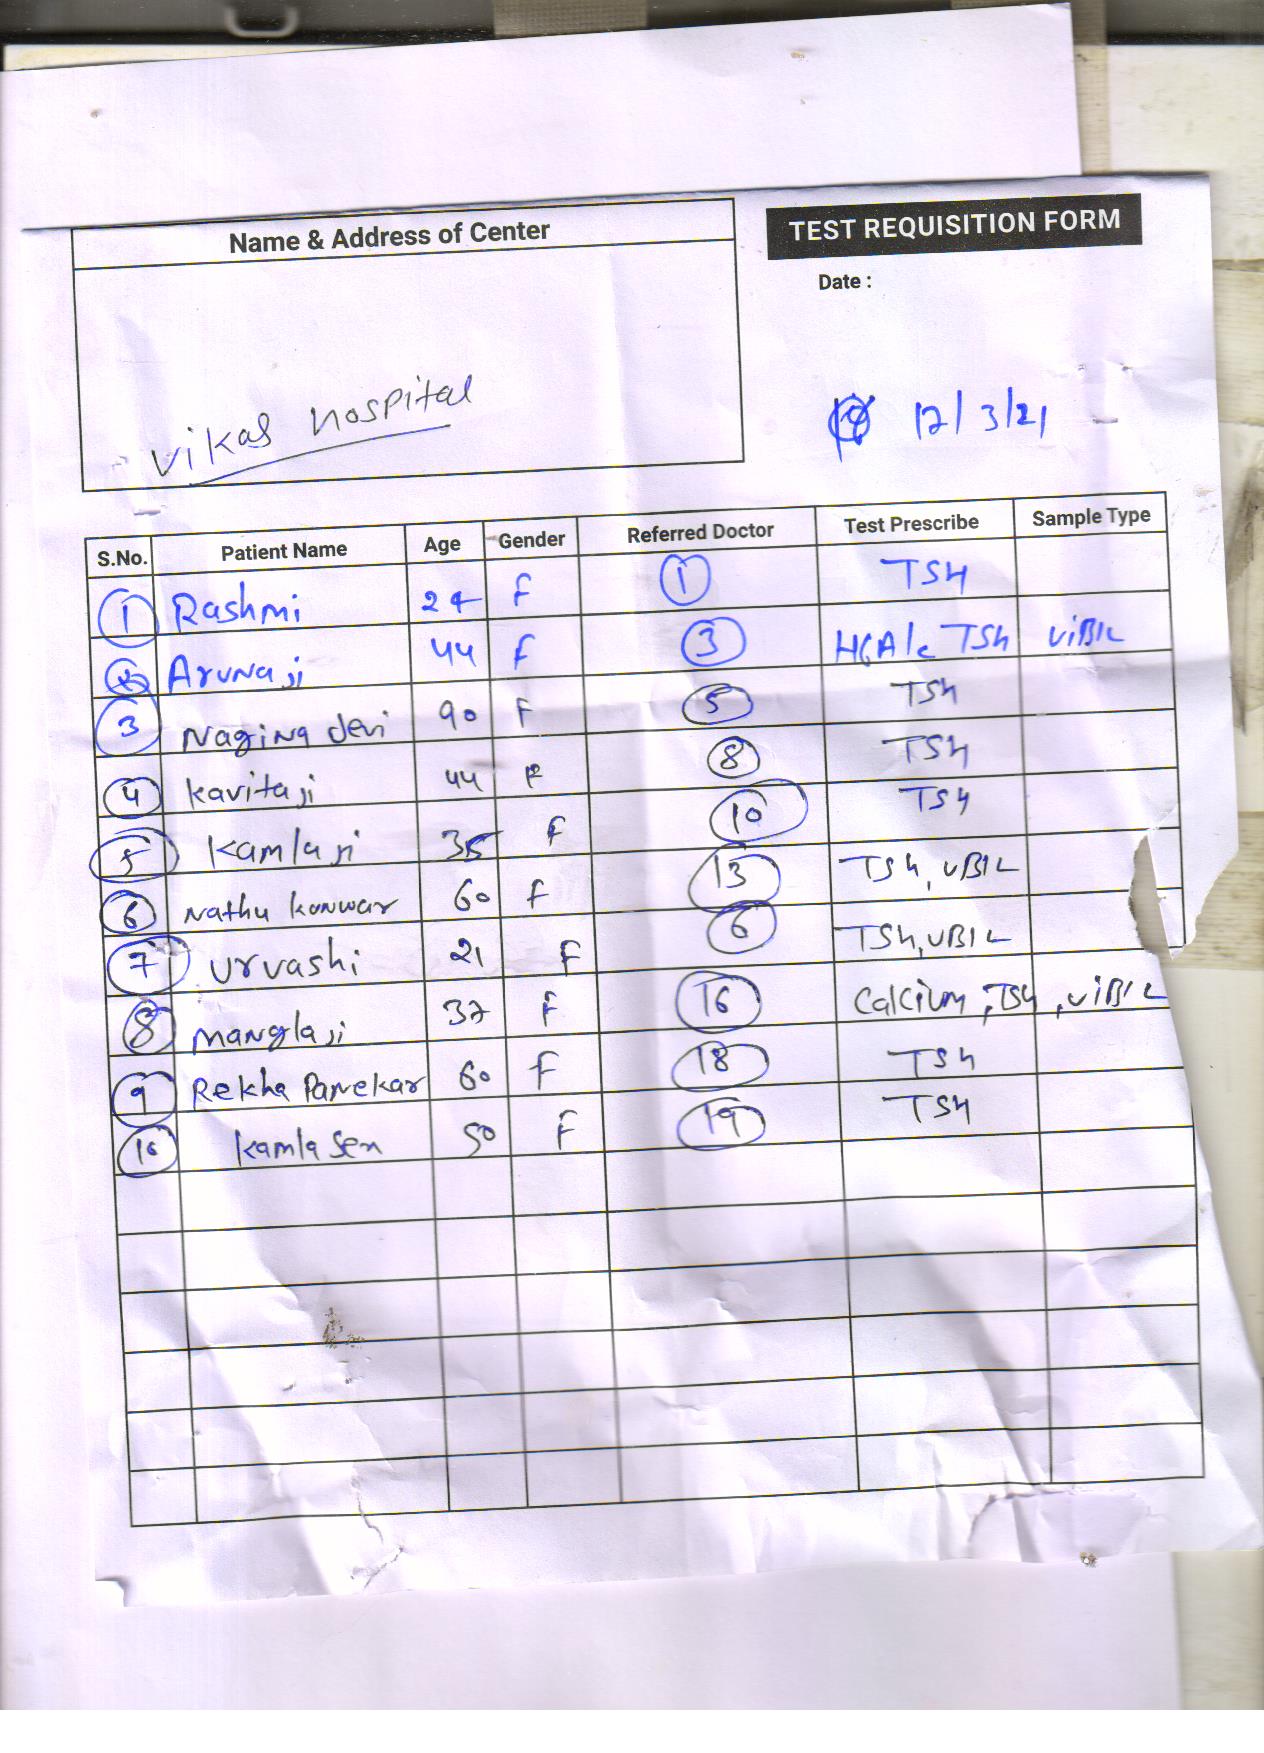 Name & Address of Center
TEST REQUISITION FORM
Date :
Vikas Hospital
12/3/21
S.No. Patient Name Age Gender Referred Doctor Test Prescribe Sample Type
1 Rashmi 24 F 1 TSH
2 Aruna ji 44 F 3 HbA1c TSH ViB12
3 Nagina devi 90 F 5 TSH
4 Kavita ji 44 F 8 TSH
5 Kamla ji 35 F 10 TSH
6 Nathu Kanwar 60 F 13 TSH, VB12
7 Urvashi 21 F 6 TSH, VB12
8 Mangla ji 37 F 16 Calcium, TSH, ViB12
9 Rekha Panekar 60 F 18 TSH
10 Kamla Sen 50 F 19 TSH